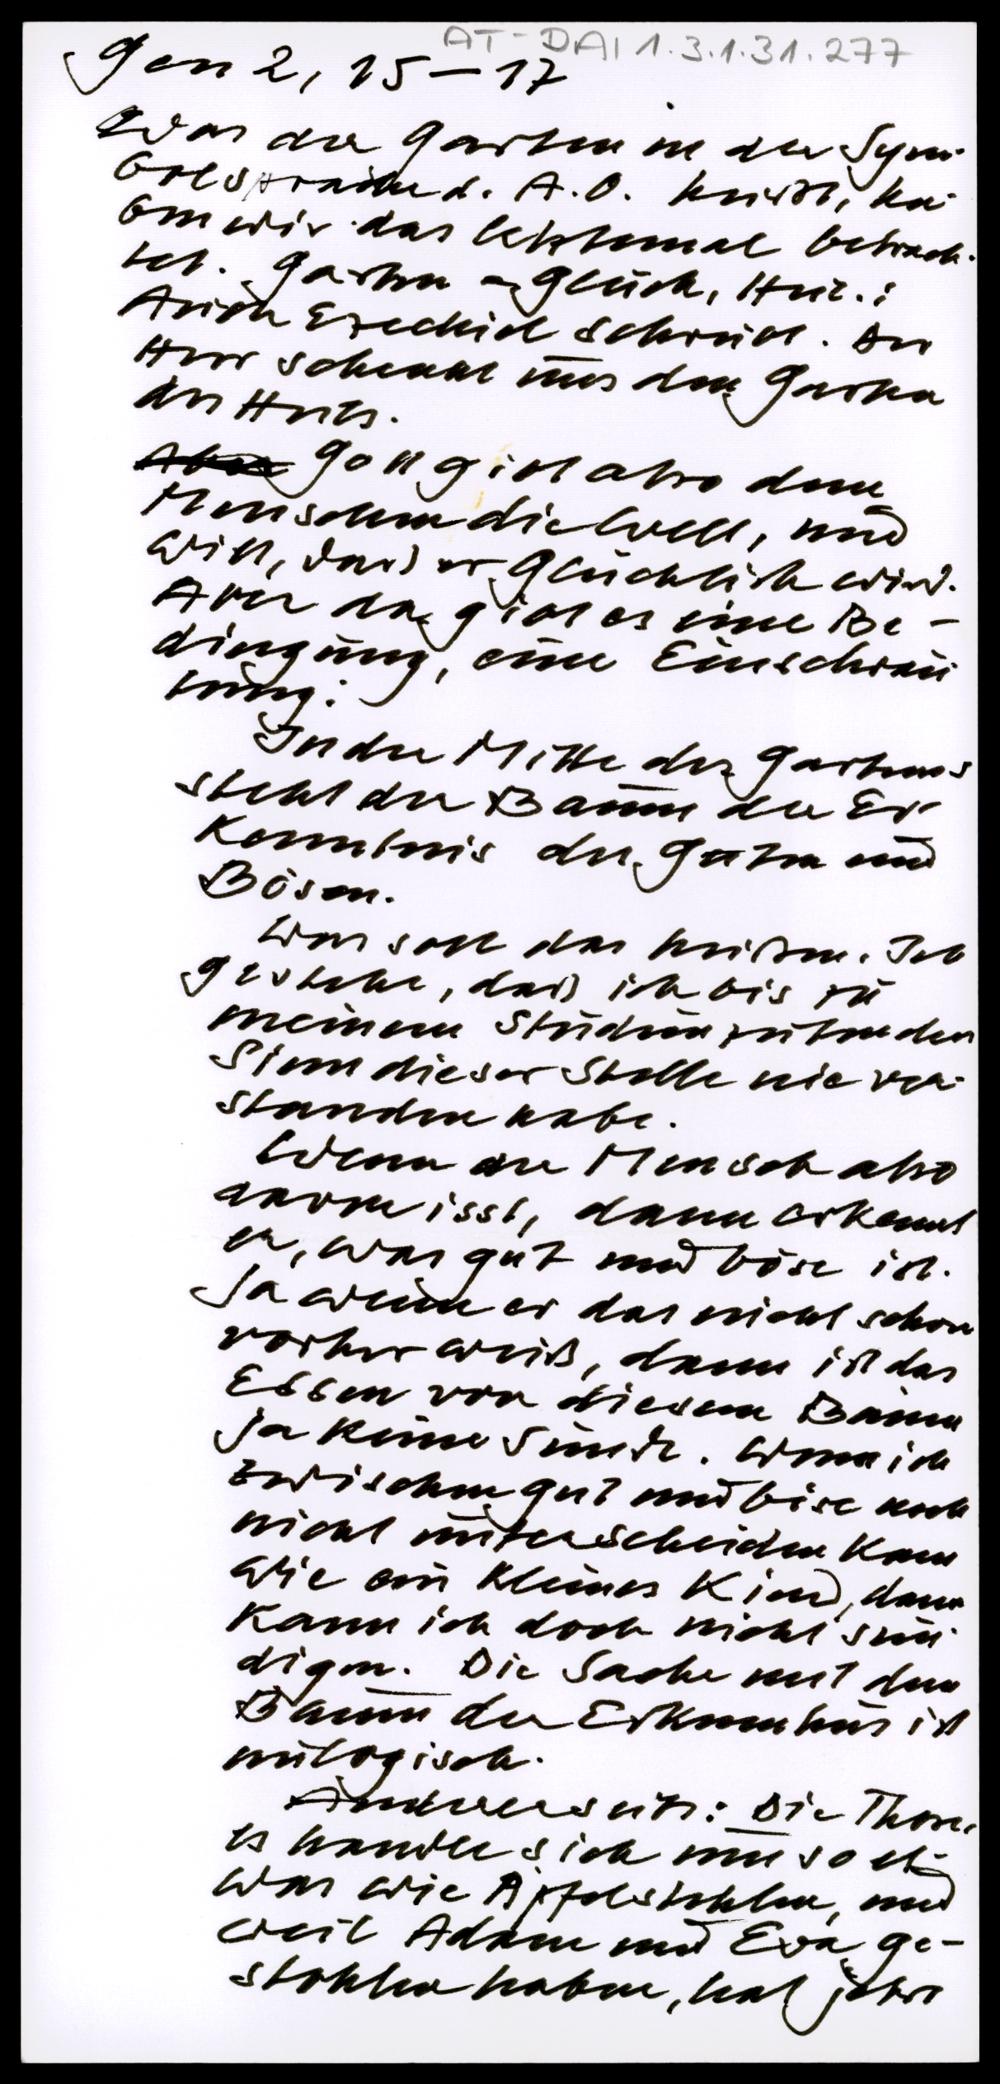 AT-DAI 1.3.1.31.277
Gen 2, 15–17
Was der Garten in der Sym-
bolsprache d. A.O. heißt, ha-
ben wir das letztemal betrach-
tet. Garten = Glück, Heil.:
Auch Ezechiel schreibt. Der
Herr schenkt uns den Garten
des Heils.
Aber Gott gibt also dem
Menschen die Welt, und
will, daß er glücklich wird.
Aber da gibt es eine Be-
dingung, eine Einschrän
kung:
In der Mitte des Gartens
steht der Baum der Er-
kenntnis des Guten und
Bösen.
Was soll das heißen. Ich
gestehe, daß ich bis zu
meinem Studium den
Sinn dieser Stelle nie ver-
standen habe.
Wenn der Mensch also
davon isst, dann erkennt
er, was gut und böse ist.
Ja wenn er das nicht schon
vorher weiß, dann ist das
Essen von diesem Baum
ja keine Sünde. Wenn ich
zwischen gut und böse noch
nicht unterscheiden kann
wie ein kleines Kind, dann
kann ich doch nicht sün-
digen. Die Sache mit dem
Baum der Erkenntnis ist
unlogisch.
Andererseits: Die These,
es handle sich um so et-
was wie Äpfelstehlen, und
weil Adam und Eva ge-
stohlen haben, hat jetzt